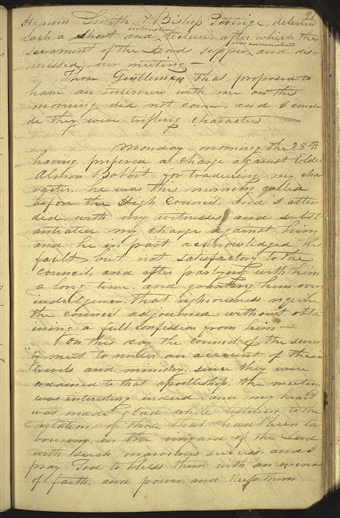 Hyrum Smith & Bishop Partridge, deliver
each a short and interesting lecture, after which the
sacrament of the Lords supper was administered and dis
missed our meeting—
Four Gentlemen that proposed to
have an interview with me on this
morning did not come, and I conclu
de they were trifling characters
Monday morning the 28th
having prefered a charge against Elder
Alvah Bobbit for traducing my cha
racter, he was this morning called
before the High Council, and I atten
ded with my witnesses and subst
antiated my charge against him
and he in part acknowledged his
fault but not satisfactory to the
council, and after parlying with him
a long time, and granting him every
indulgence, that righteousness require
the council adjourned without obta
ining a full confession from him—
On this day the council of the seven
ty met to render an account of their
travels and ministry, since they were
ordained to that apostleship the meeting
was interesting indeed and my heart
was made glad while listening to the
relation of those that have been la
bouring in the vinyard of the Lord
with such marvelous success and I
pray God to bless them with an increas
of faith, and power, and keep them